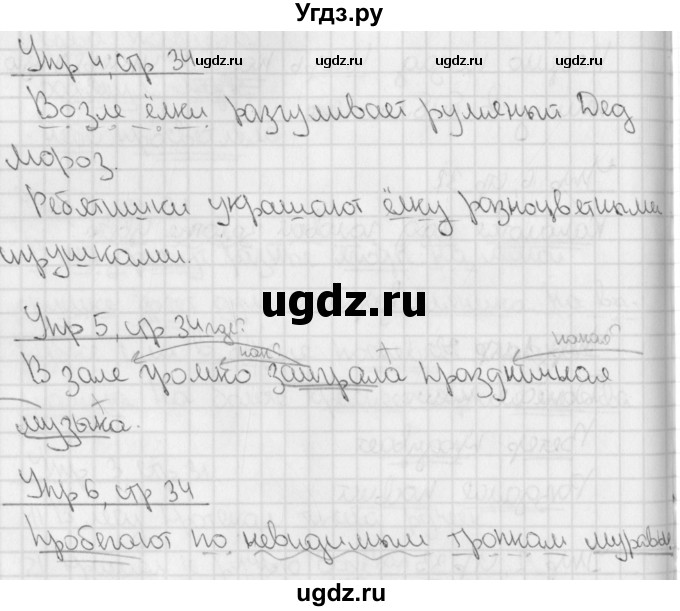 Угдз.ру
ugdz.ru ugdz.ru ugdz.ru ugdz.ru
Упр 4, стр 34
Возле ёлки разгуливает румяный Дед
Мороз.
Ребятишки украшают ёлку разноцветными
игрушками.
ugdz.ru
Упр 5, стр 34
где? как? какая?
В зале громко заиграла праздничная
музыка.
Упр 6, стр 34
Пробегают по невидимым тропкам муравьи.
ugdz.ru ugdz.ru ugdz.ru ugdz.ru
ugdz.ru